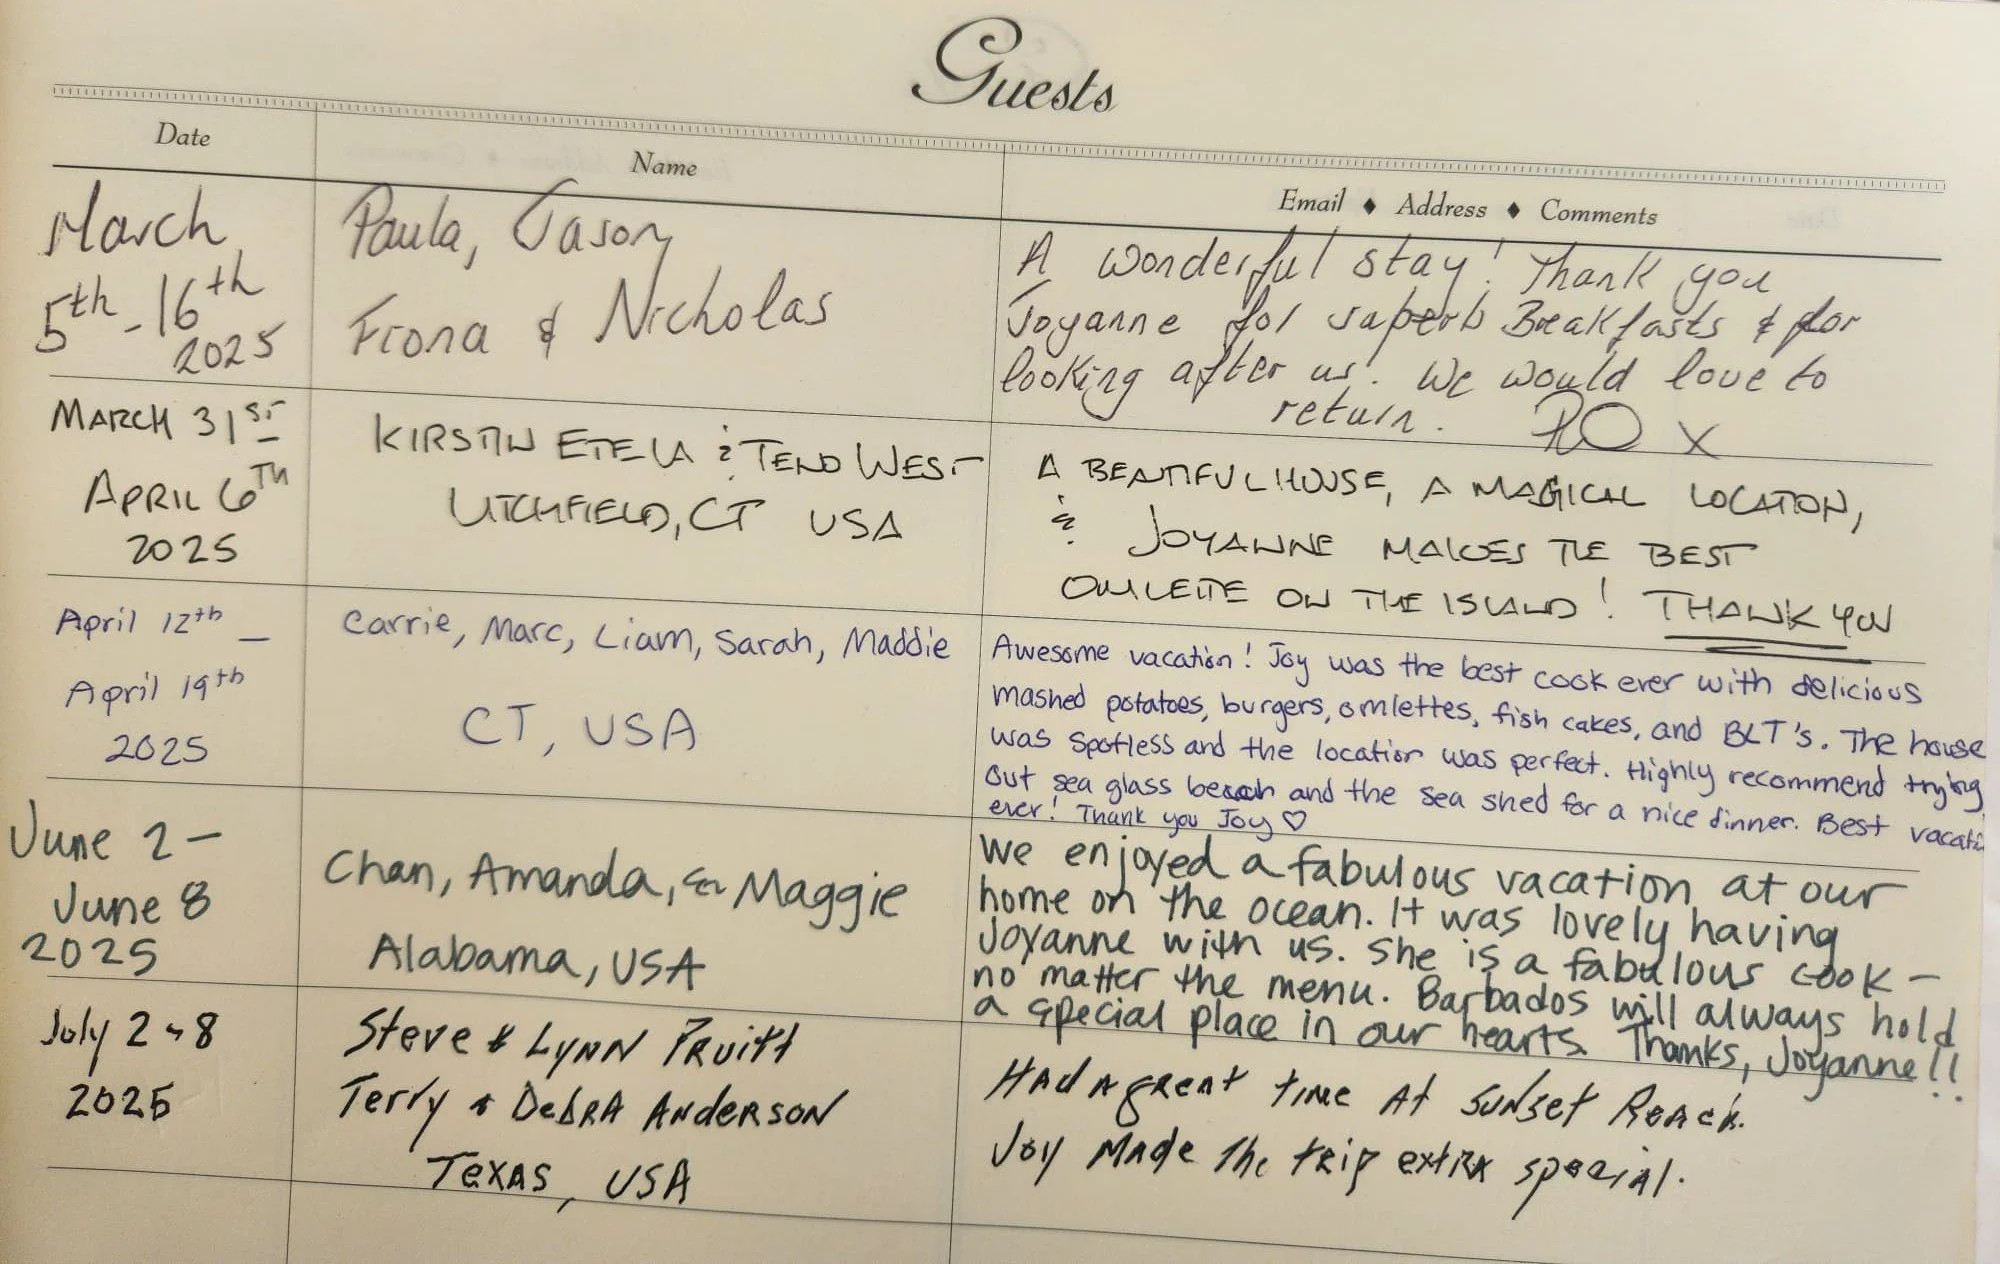 Guests
Date
Name
Email ♦ Address ♦ Comments
March
5th - 16th
2025
Paula, Jason
Fiona & Nicholas
A wonderful stay! Thank you
Joyanne for superb Breakfasts & for
looking after us! We would love to
return. x
MARCH 31ST -
APRIL 6TH
2025
KIRSTIN & WEST
LITCHFIELD, CT USA
A BEAUTIFUL HOUSE, A MAGICAL LOCATION,
& JOYANNE MAKES THE BEST
OMLETTE ON THE ISLAND! THANK YOU
April 12th -
April 19th
2025
Carrie, Marc, Liam, Sarah, Maddie
CT, USA
Awesome vacation! Joy was the best cook ever with delicious
mashed potatoes, burgers, omlettes, fish cakes, and BLT's. The house
was spotless and the location was perfect. Highly recommend trying
out sea glass beach and the sea shed for a nice dinner. Best vacati
ever! Thank you Joy ♡
June 2 -
June 8
2025
Chan, Amanda, & Maggie
Alabama, USA
We enjoyed a fabulous vacation at our
home on the ocean. It was lovely having
Joyanne with us. She is a fabulous cook -
no matter the menu. Barbados will always hold
a special place in our hearts. Thanks, Joyanne!!
July 2 - 8
2025
Steve & Lynn Pruitt
Terry & Debra Anderson
Texas, USA
Had a great time at Sunset Reach.
Joy made the trip extra special.